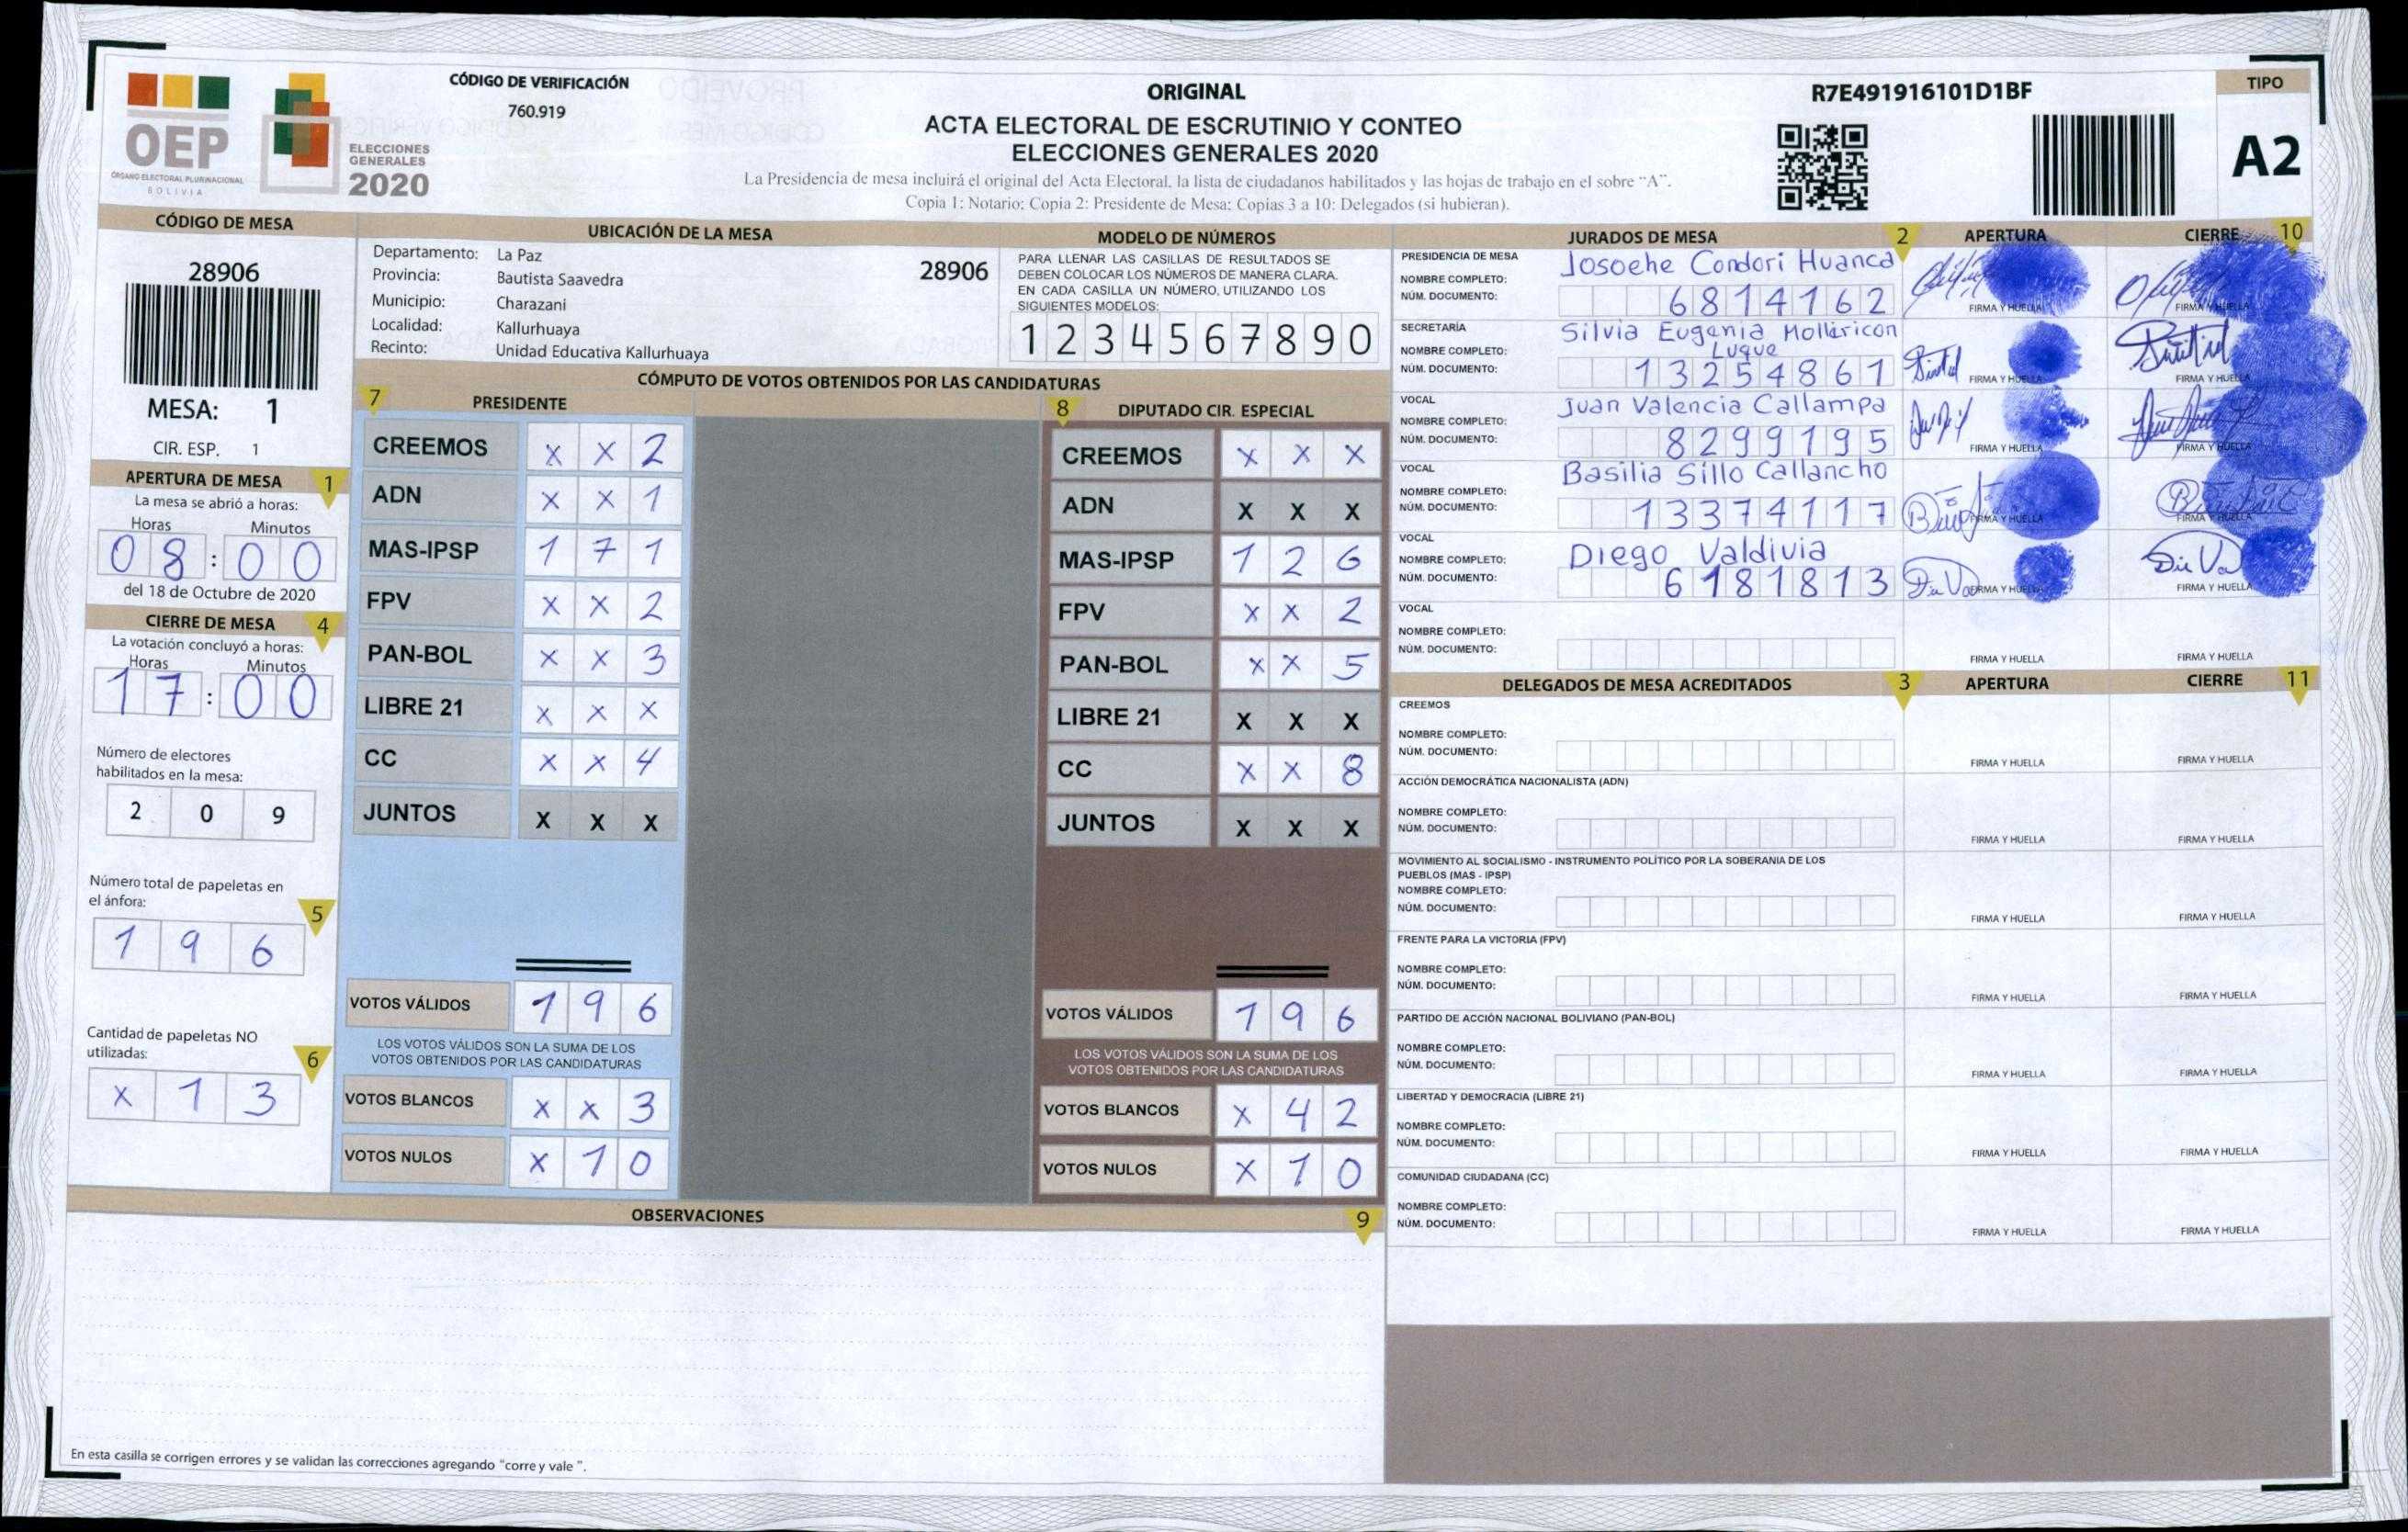 CÓDIGO DE VERIFICACIÓN
760.919
OEP
ÓRGANO ELECTORAL PLURINACIONAL
BOLIVIA
ELECCIONES
GENERALES
2020
ORIGINAL
ACTA ELECTORAL DE ESCRUTINIO Y CONTEO
ELECCIONES GENERALES 2020
La Presidencia de mesa incluirá el original del Acta Electoral, la lista de ciudadanos habilitados y las hojas de trabajo en el sobre "A".
Copia 1: Notario; Copia 2: Presidente de Mesa; Copias 3 a 10: Delegados (si hubieran).
R7E491916101D1BF
TIPO
A2
CÓDIGO DE MESA
28906
MESA: 1
CIR. ESP. 1
APERTURA DE MESA 1
La mesa se abrió a horas:
Horas Minutos
08:00
del 18 de Octubre de 2020
CIERRE DE MESA 4
La votación concluyó a horas:
Horas Minutos
17:00
Número de electores
habilitados en la mesa:
2 0 9
Número total de papeletas en
el ánfora: 5
1 9 6
Cantidad de papeletas NO
utilizadas: 6
X 1 3
UBICACIÓN DE LA MESA
Departamento: La Paz
28906
Provincia: Bautista Saavedra
Municipio: Charazani
Localidad: Kallurhuaya
Recinto: Unidad Educativa Kallurhuaya
MODELO DE NÚMEROS
PARA LLENAR LAS CASILLAS DE RESULTADOS SE
DEBEN COLOCAR LOS NÚMEROS DE MANERA CLARA.
EN CADA CASILLA UN NÚMERO, UTILIZANDO LOS
SIGUIENTES MODELOS:
1 2 3 4 5 6 7 8 9 0
CÓMPUTO DE VOTOS OBTENIDOS POR LAS CANDIDATURAS
7 PRESIDENTE
CREEMOS X X 2
ADN X X 1
MAS-IPSP 1 7 1
FPV X X 2
PAN-BOL X X 3
LIBRE 21 X X X
CC X X 4
JUNTOS X X X
VOTOS VÁLIDOS 1 9 6
LOS VOTOS VÁLIDOS SON LA SUMA DE LOS
VOTOS OBTENIDOS POR LAS CANDIDATURAS
VOTOS BLANCOS X X 3
VOTOS NULOS X 1 0
8 DIPUTADO CIR. ESPECIAL
CREEMOS X X X
ADN X X X
MAS-IPSP 1 2 6
FPV X X 2
PAN-BOL X X 5
LIBRE 21 X X X
CC X X 8
JUNTOS X X X
VOTOS VÁLIDOS 1 9 6
LOS VOTOS VÁLIDOS SON LA SUMA DE LOS
VOTOS OBTENIDOS POR LAS CANDIDATURAS
VOTOS BLANCOS X 4 2
VOTOS NULOS X 1 0
OBSERVACIONES 9
En esta casilla se corrigen errores y se validan las correcciones agregando "corre y vale ".
JURADOS DE MESA 2 APERTURA CIERRE 10
PRESIDENCIA DE MESA
NOMBRE COMPLETO: Josoehe Condori Huanca
NÚM. DOCUMENTO: 6814162
FIRMA Y HUELLA FIRMA Y HUELLA
SECRETARÍA
NOMBRE COMPLETO: Silvia Eugenia Mollericon
Luque
NÚM. DOCUMENTO: 13254861
FIRMA Y HUELLA FIRMA Y HUELLA
VOCAL
NOMBRE COMPLETO: Juan Valencia Callampa
NÚM. DOCUMENTO: 8299195
FIRMA Y HUELLA FIRMA Y HUELLA
VOCAL
NOMBRE COMPLETO: Basilia Sillo Callancho
NÚM. DOCUMENTO: 13374117
FIRMA Y HUELLA FIRMA Y HUELLA
VOCAL
NOMBRE COMPLETO: Diego Valdivia
NÚM. DOCUMENTO: 6181813
FIRMA Y HUELLA FIRMA Y HUELLA
VOCAL
NOMBRE COMPLETO:
NÚM. DOCUMENTO:
FIRMA Y HUELLA FIRMA Y HUELLA
DELEGADOS DE MESA ACREDITADOS 3 APERTURA CIERRE 11
CREEMOS
NOMBRE COMPLETO:
NÚM. DOCUMENTO:
FIRMA Y HUELLA FIRMA Y HUELLA
ACCIÓN DEMOCRÁTICA NACIONALISTA (ADN)
NOMBRE COMPLETO:
NÚM. DOCUMENTO:
FIRMA Y HUELLA FIRMA Y HUELLA
MOVIMIENTO AL SOCIALISMO - INSTRUMENTO POLÍTICO POR LA SOBERANIA DE LOS
PUEBLOS (MAS - IPSP)
NOMBRE COMPLETO:
NÚM. DOCUMENTO:
FIRMA Y HUELLA FIRMA Y HUELLA
FRENTE PARA LA VICTORIA (FPV)
NOMBRE COMPLETO:
NÚM. DOCUMENTO:
FIRMA Y HUELLA FIRMA Y HUELLA
PARTIDO DE ACCIÓN NACIONAL BOLIVIANO (PAN-BOL)
NOMBRE COMPLETO:
NÚM. DOCUMENTO:
FIRMA Y HUELLA FIRMA Y HUELLA
LIBERTAD Y DEMOCRACIA (LIBRE 21)
NOMBRE COMPLETO:
NÚM. DOCUMENTO:
FIRMA Y HUELLA FIRMA Y HUELLA
COMUNIDAD CIUDADANA (CC)
NOMBRE COMPLETO:
NÚM. DOCUMENTO:
FIRMA Y HUELLA FIRMA Y HUELLA